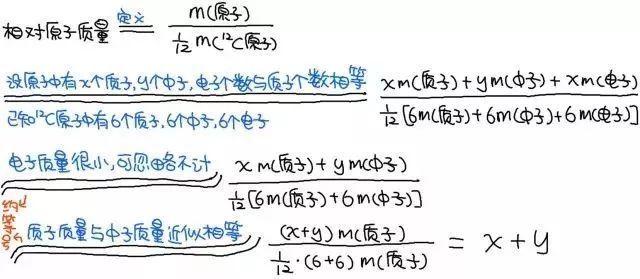 相对原子质量 定义 m(原子) / 1/12 m(¹²C原子)
设原子中有x个质子,y个中子,电子个数与质子个数相等 xm(质子)+ym(中子)+xm(电子) / 1/12[6m(质子)+6m(中子)+6m(电子)]
已知¹²C原子中有6个质子,6个中子,6个电子
电子质量很小,可忽略不计 xm(质子)+ym(中子) / 1/12[6m(质子)+6m(中子)]
约等号
质子质量与中子质量近似相等 (x+y)m(质子) / 1/12·(6+6)m(质子) = x+y